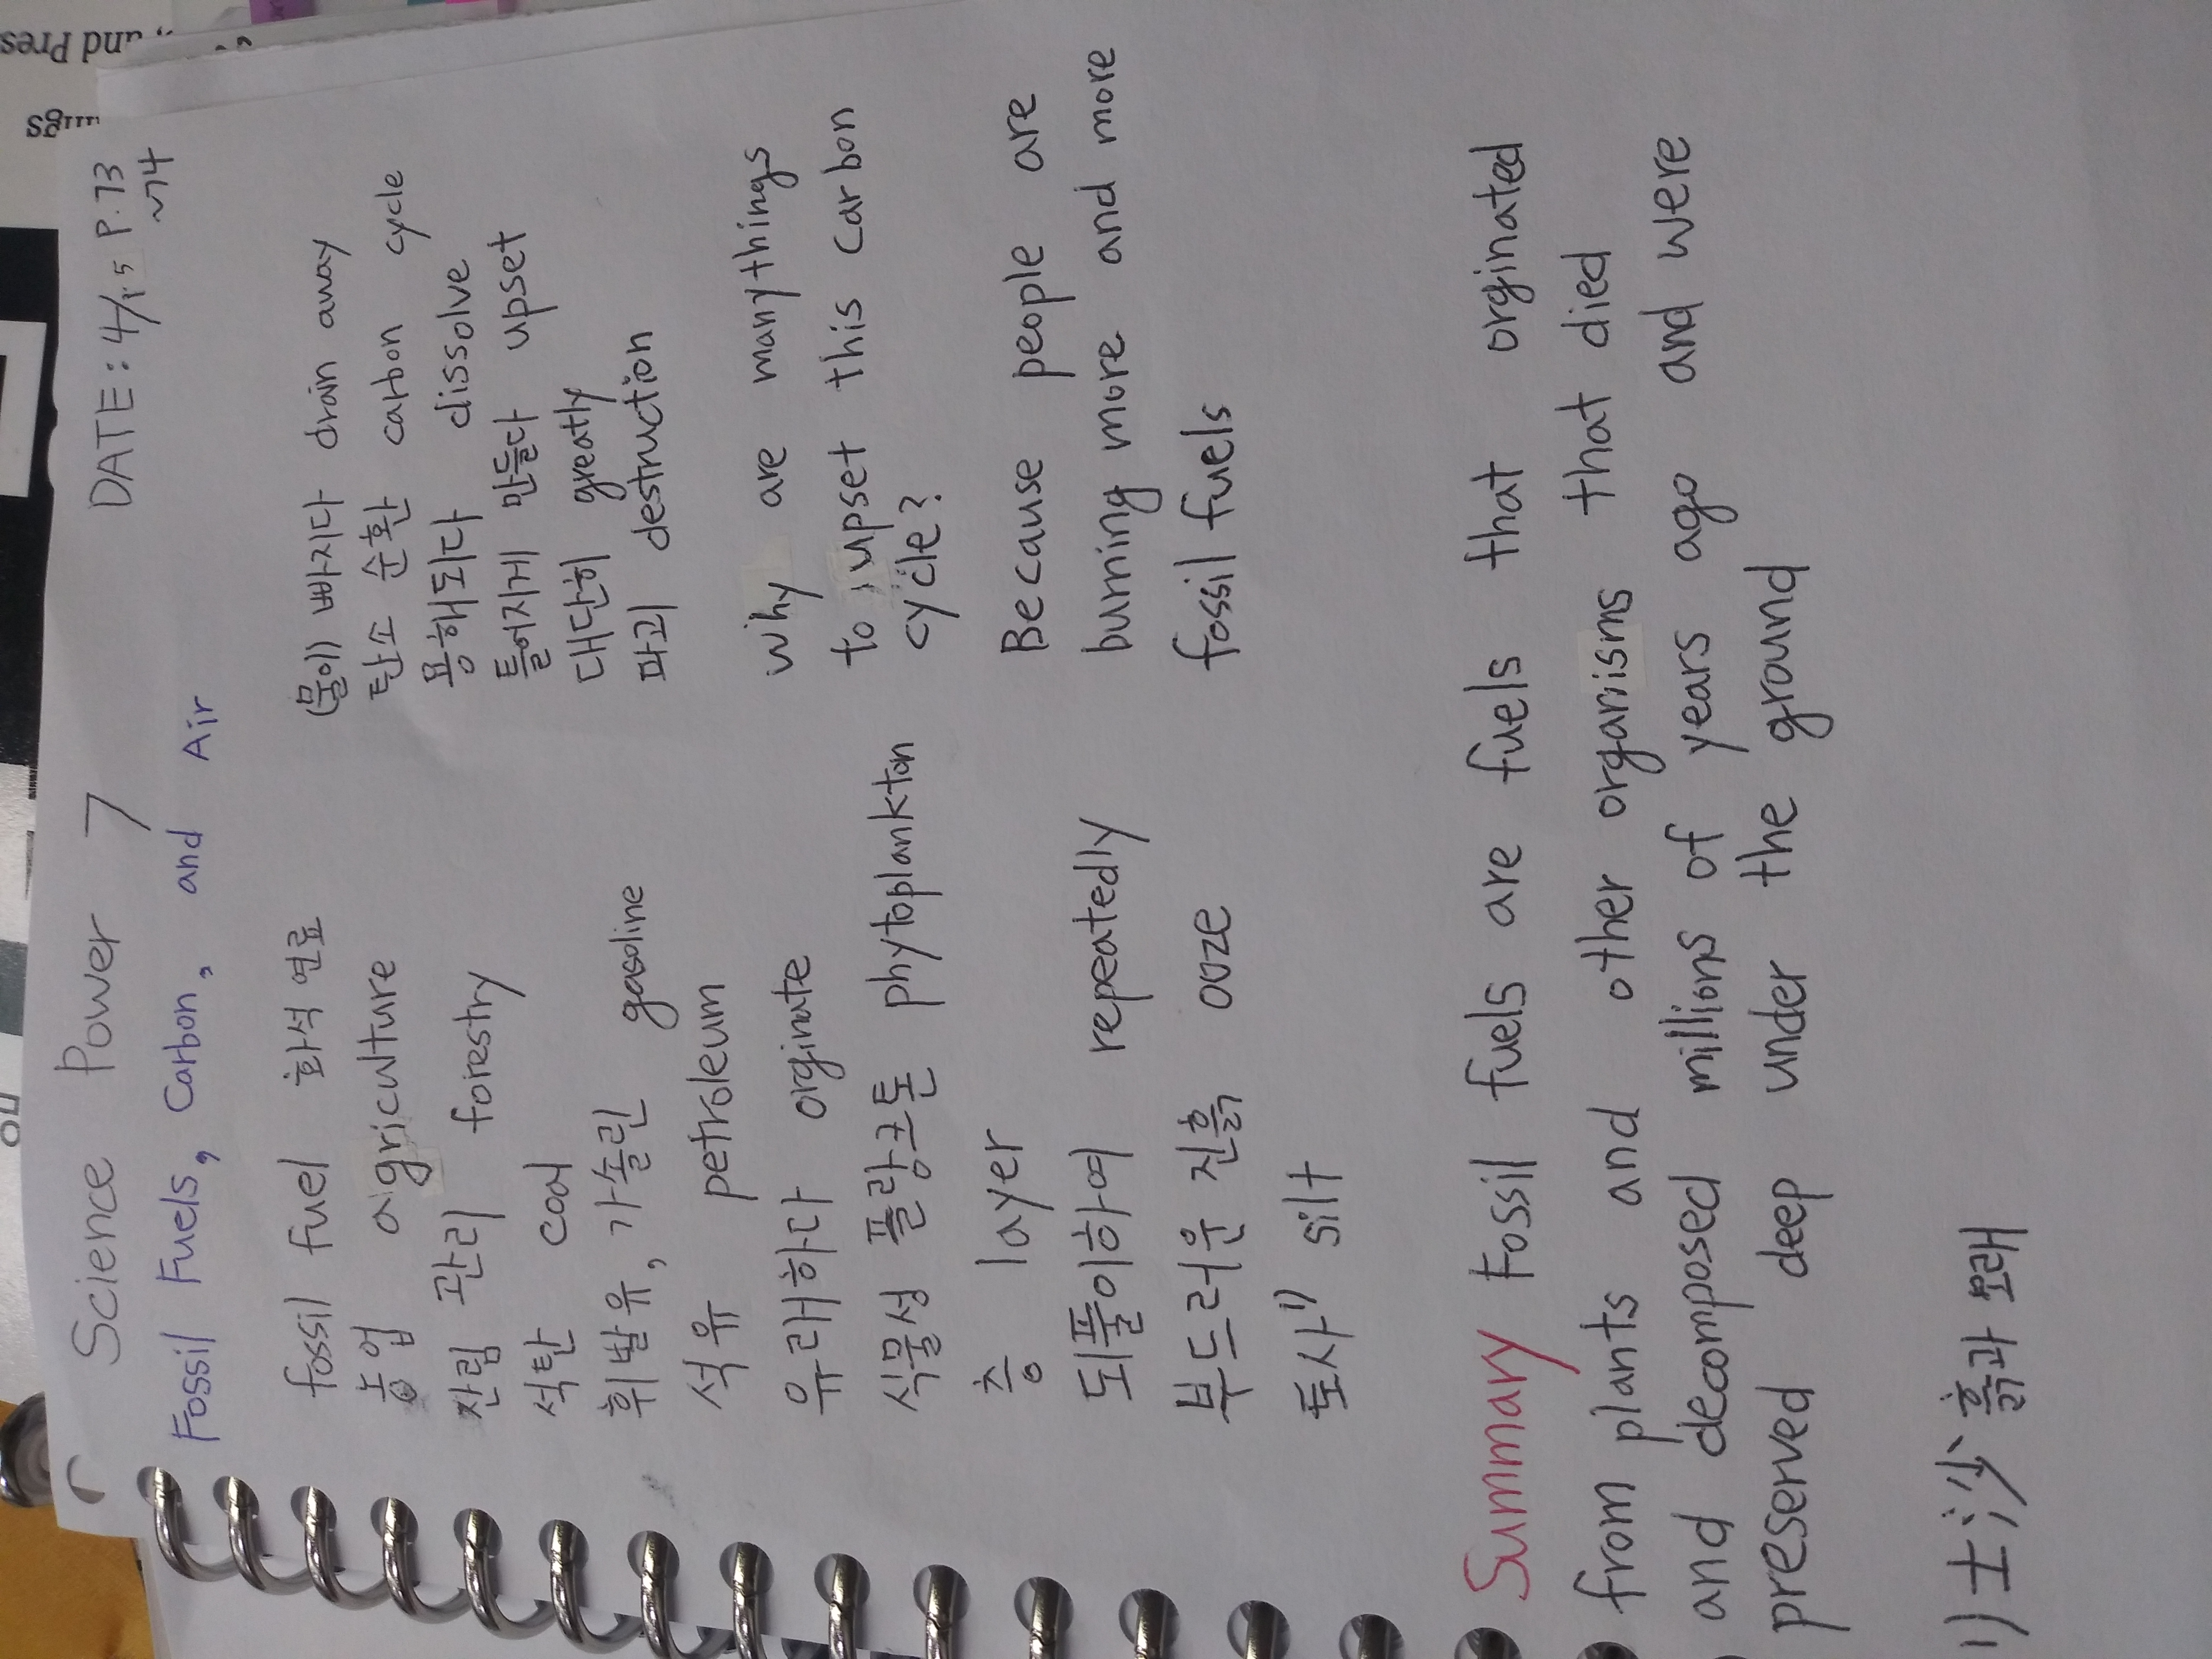 Science Power 7 DATE: 4/15 P.73
~74
Fossil Fuels, Carbon, and Air
fossil fuel 화석 연료
농업 agriculture
산림 관리 forestry
석탄 coal
휘발유, 가솔린 gasoline
석유 petroleum
유래하다 orginate
식물성 플랑크톤 phytoplankton
층 layer
되풀이하여 repeatedly
부드러운 진흙 ooze
토사¹⁾ silt
(물이) 빠지다 drain away
탄소 순환 carbon cycle
용해되다 dissolve
틀어지게 만들다 upset
대단히 greatly
파괴 destruction
why are many things
to upset this carbon
cycle?
Because people are
burning more and more
fossil fuels
Summary Fossil fuels are fuels that orginated
from plants and other organisms that died
and decomposed millions of years ago and were
preserved deep under the ground
1) 土沙 흙과 모래
and Pres
ngs